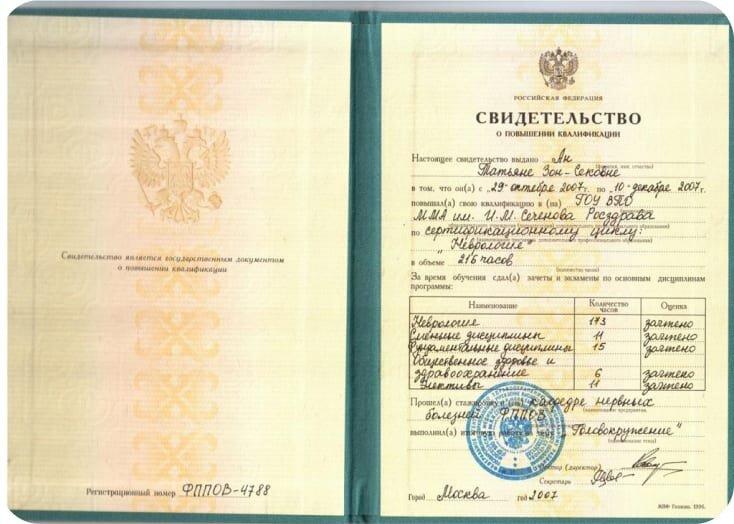 Свидетельство является государственным документом
о повышении квалификации
Регистрационный номер ФППОВ-4788
РОССИЙСКАЯ ФЕДЕРАЦИЯ
СВИДЕТЕЛЬСТВО
О ПОВЫШЕНИИ КВАЛИФИКАЦИИ
Настоящее свидетельство выдано Ан
(фамилия, имя, отчество)
Татьяне Зон-Сековне
в том, что он(а) с „29" октября 2007г. по „10" декабря 2007г.
повышал(а) свою квалификацию в (на) ГОУ ВПО
ММА им. И.М. Сеченова Росздрава
по сертификационному циклу:
„Неврология"
в объеме 216 часов
(количество часов)
За время обучения сдал(а) зачеты и экзамены по основным дисциплинам
программы:
Наименование Количество часов Оценка
Неврология 173 зачтено
Смежные дисциплины 11 зачтено
Фундаментальные дисциплины 15 зачтено
Общественное здоровье и
здравоохранение 6 зачтено
Элективы 11 зачтено
Прошел(а) стажировку в (на) кафедре нервных
(наименование предприятия,
болезней ФППОВ
выполнил(а) итоговую работу на тему „Головокружение"
(наименование темы)
Ректор (директор)
Секретарь
Город Москва год 2007